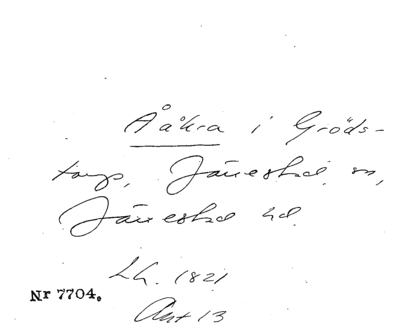 Ååkra i Gröds-
torp, Järrestad sn,
Järrestad hd.
Lh. 1821
Nr 7704.
Akt 13